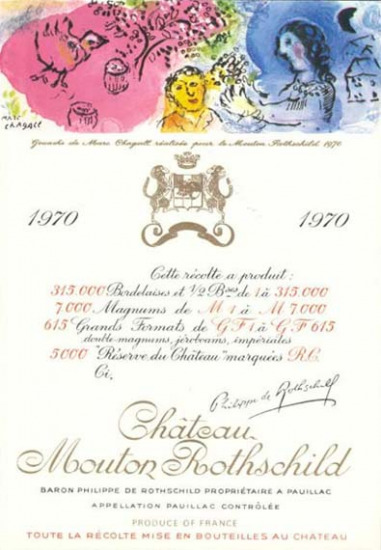 MARC
CHAGALL
Gouache de Marc Chagall, réalisée pour le Mouton Rothschild 1970
1970 1970
Cette récolte a produit :
315.000 Bordelaises et 1/2 Bses de 1 à 315.000
7.000 Magnums de M 1 à M 7000
615 Grands Formats de G F 1 à G F 615
double-magnums, jéroboams, impériales
5000 "Réserve du Château" marquées R.C.
Ci,
Philippe de Rothschild
Château
Mouton Rothschild
BARON PHILIPPE DE ROTHSCHILD PROPRIÉTAIRE A PAUILLAC
APPELLATION PAUILLAC CONTRÔLÉE
PRODUCE OF FRANCE
TOUTE LA RÉCOLTE MISE EN BOUTEILLES AU CHÂTEAU